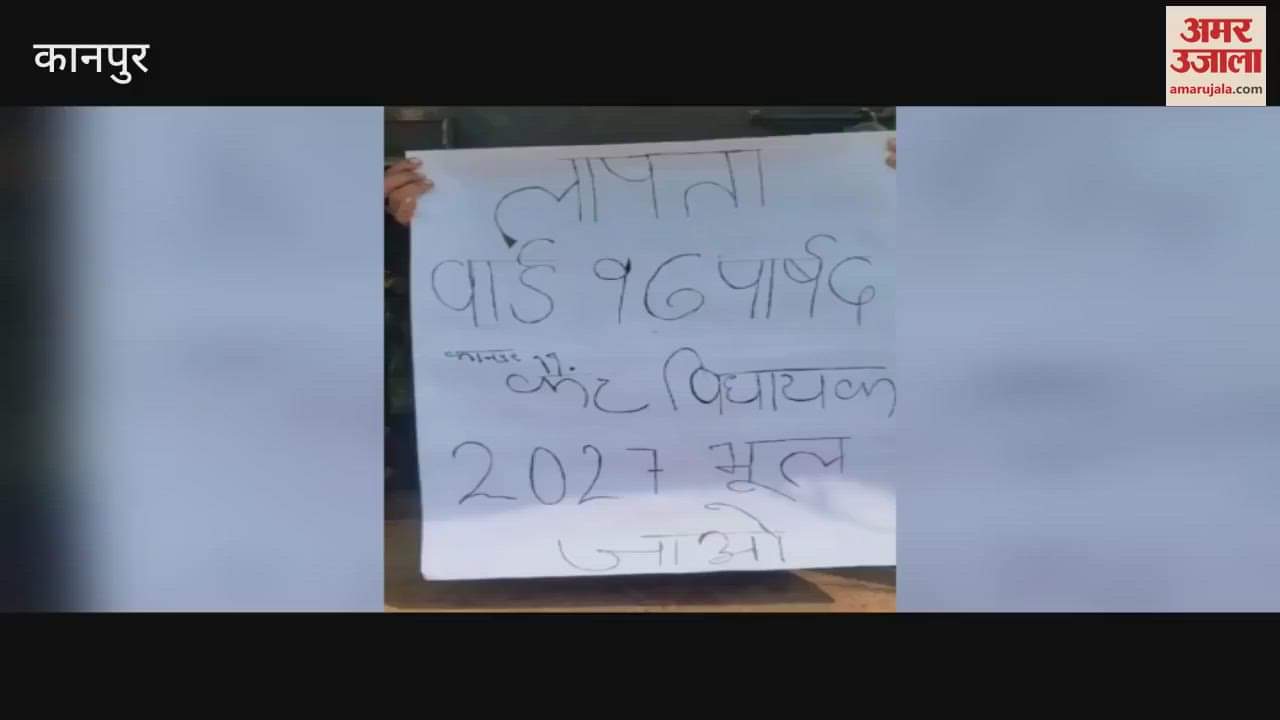 कानपुर
अमर
उजाला
amarujala.com
लापता
वार्ड १७ पार्षद
कैंट विधायक
2027 भूल
जाओ